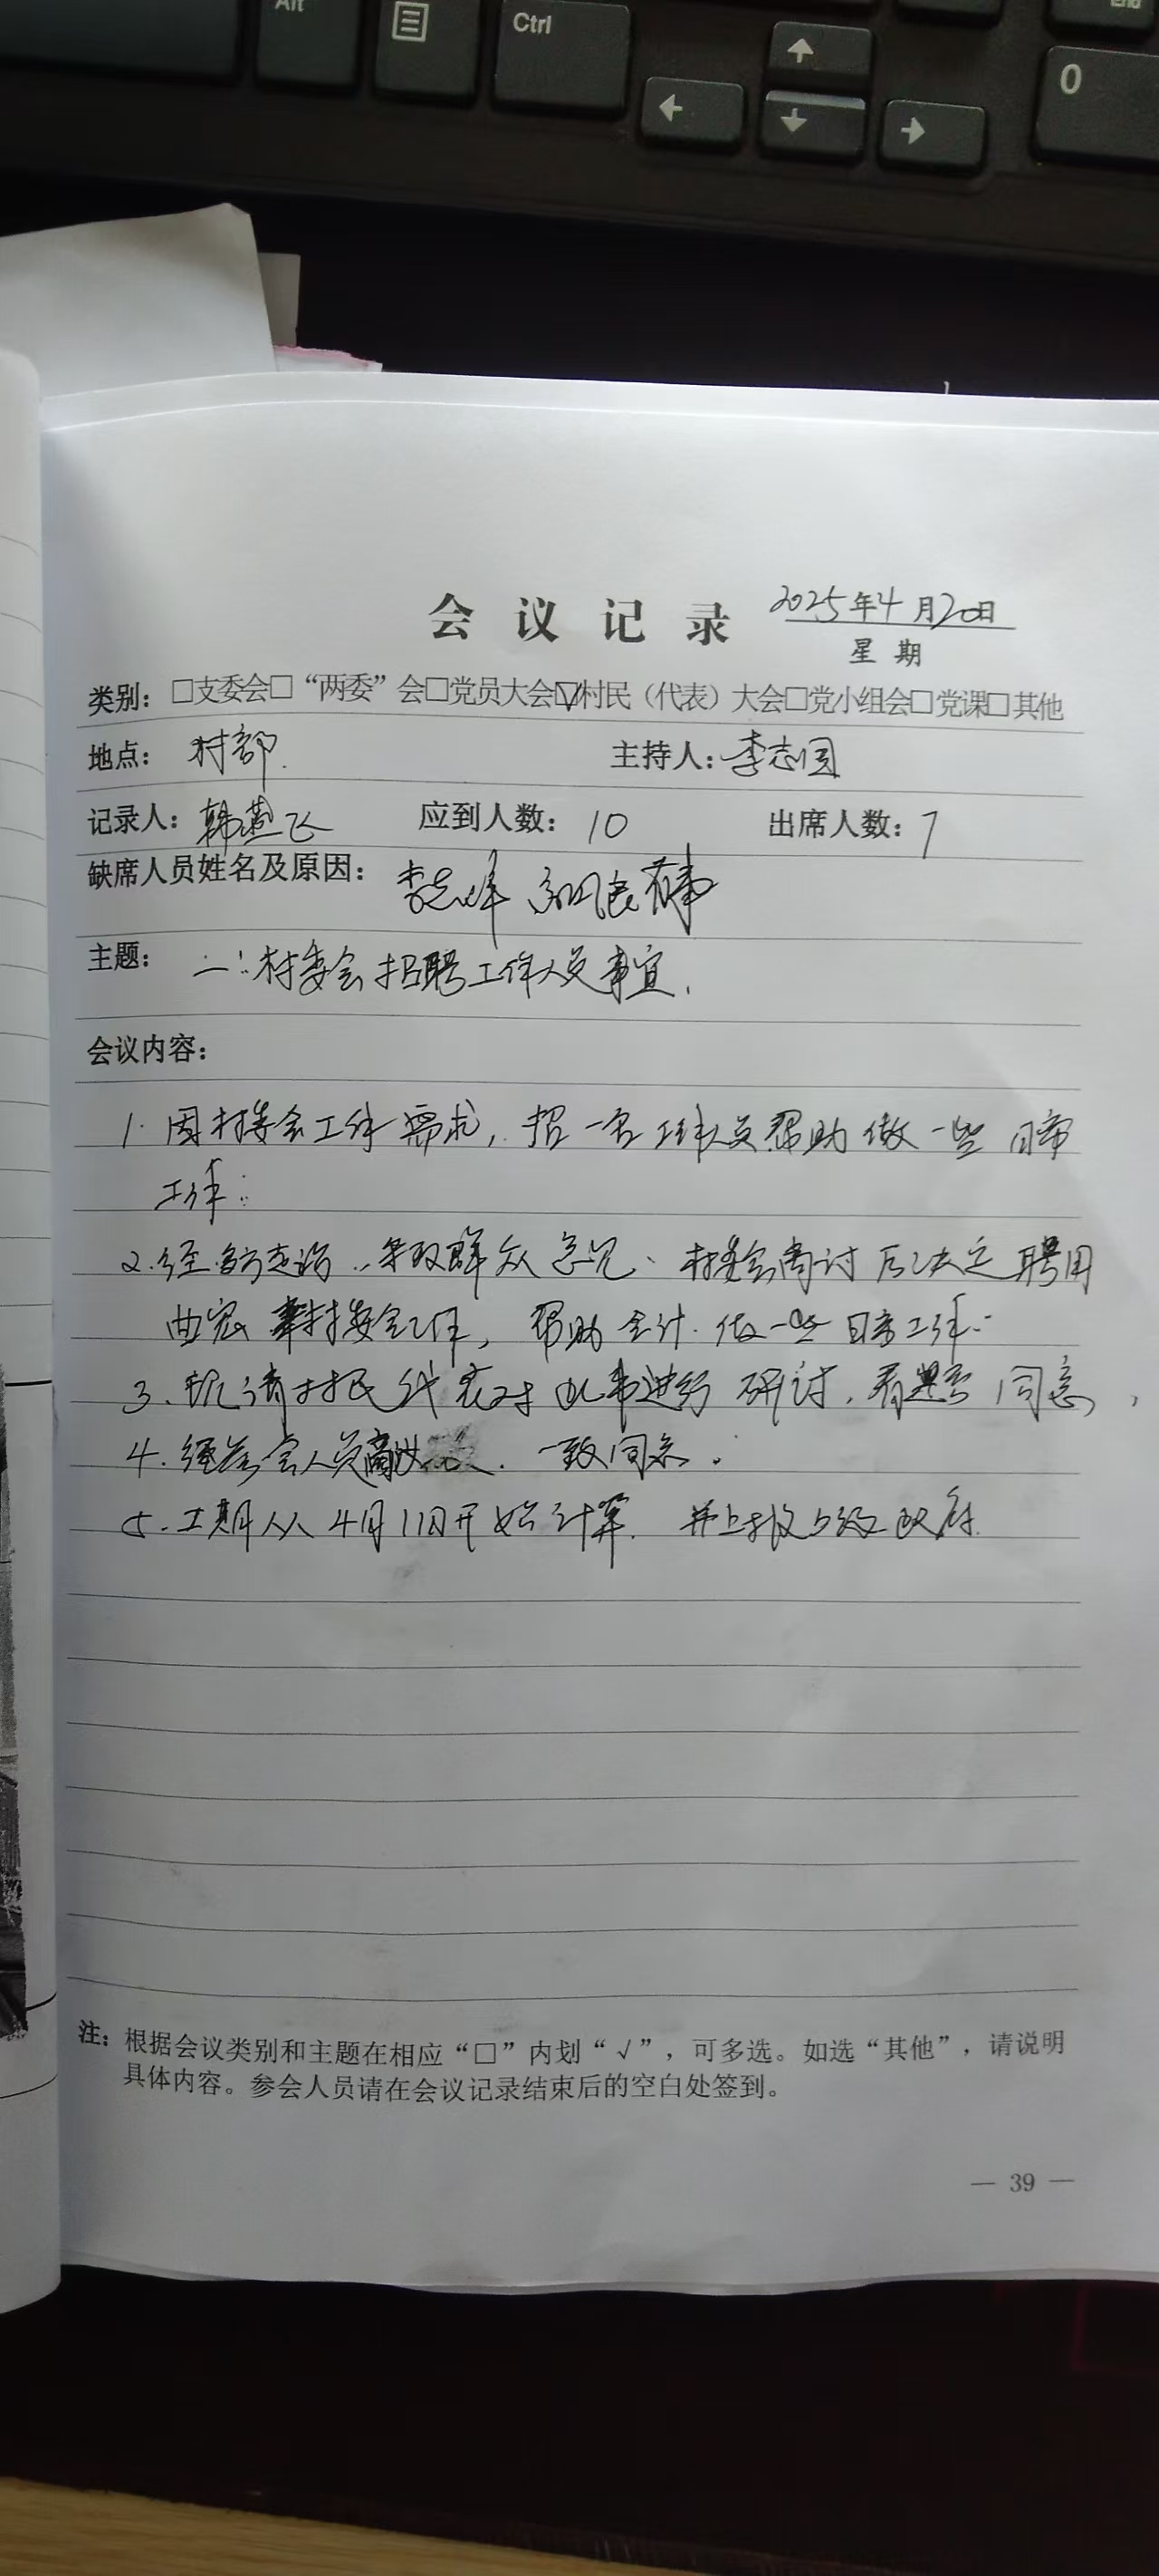 Alt
Ctrl
End
0
会议记录 2025年4月20日
星期
类别：□支委会□“两委”会□党员大会☑村民（代表）大会□党小组会□党课□其他
地点： 村部. 主持人：李志国
记录人：韩燕飞 应到人数： 10 出席人数：7
缺席人员姓名及原因： 李志峰 有事
主题： 二：村委会招聘工作人员事宜.
会议内容：
1. 因村委会工作需求，招一名工作人员帮助做一些日常
工作：
2.经 群众意见、村委会商讨后决定聘用
曲宏 来村委会工作，帮助会计.做一些日常工作.
3.现请村民代表对此事进行研讨，看是否同意，
4.经与会人员商议 . 一致同意.
5.工期从4月1日开始计算. 并上报乡级政府.
注：根据会议类别和主题在相应“□”内划“√”，可多选。如选“其他”，请说明
具体内容。参会人员请在会议记录结束后的空白处签到。
— 39 —